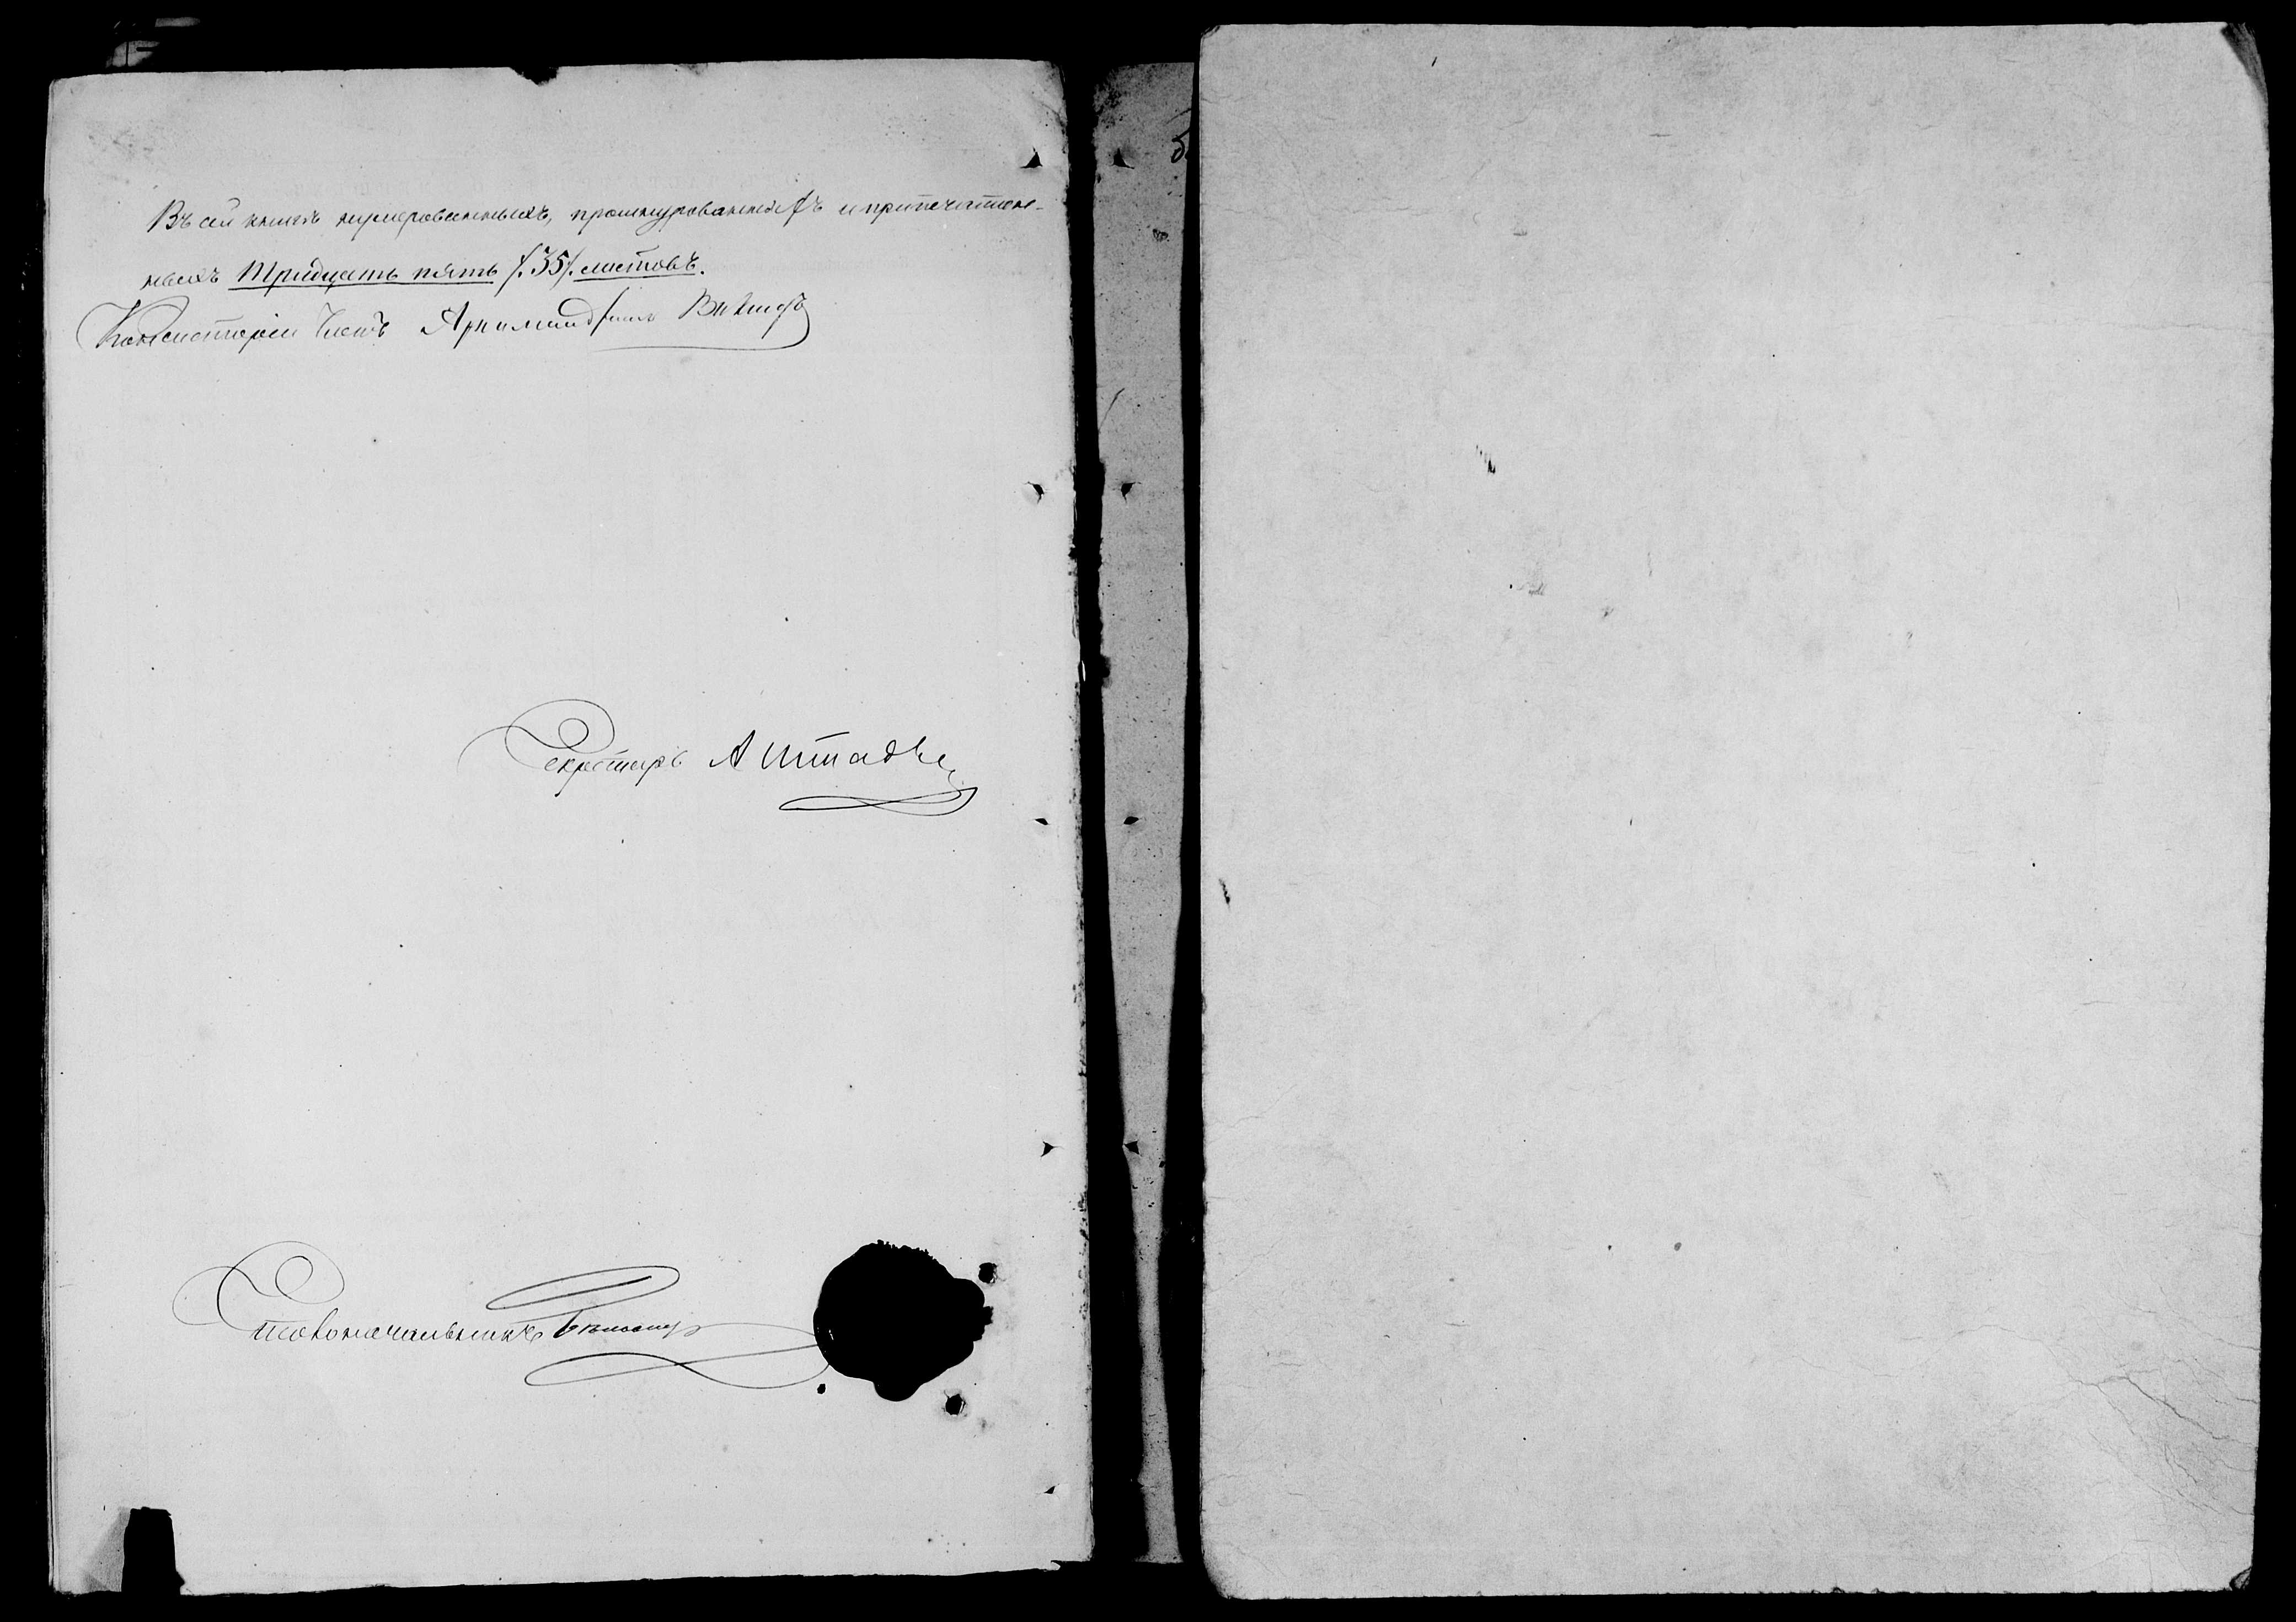 Въ сей книгѣ нумерованныхъ, прошнурованныхъ и припечатан-
ныхъ Тридцать пять /.35/. листовъ.
Консисторіи Членъ Архимандритъ Викторъ
Секретарь А
Столоначальникъ